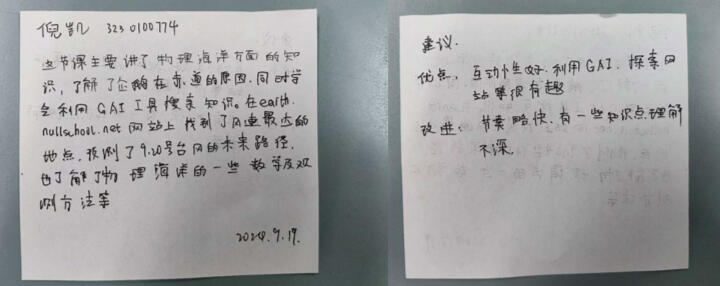 倪凯 3230100774
这节课主要讲了物理海洋方面的知
识,了解了企鹅在赤道的原因.同时学
会利用GAI工具搜索知识,在earth.
nullschool.net网站上找到了风速最大的
地点,预测了9.20号台风的未来路径.
也了解了物理海洋的一些数学及观
测方法等
2024.9.19.
建议.
优点:互动性好.利用GAI.探索网
站等很有趣
改进:节奏略快.有一些知识点理解
不深.